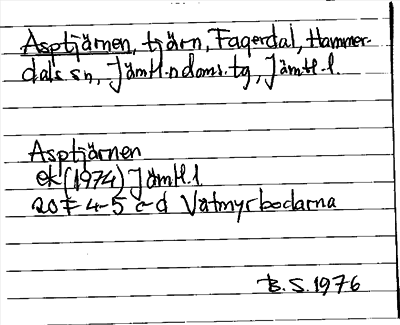 Asptjärnen, tjärn, Fagerdal, Hammer-
dals sn, Jämtl. n doms. tg, Jämtl. l.
Asptjärnen
ek (1974) Jämtl. l
20F 4-5 c-d Våtmyrbodarna
B. S. 1976